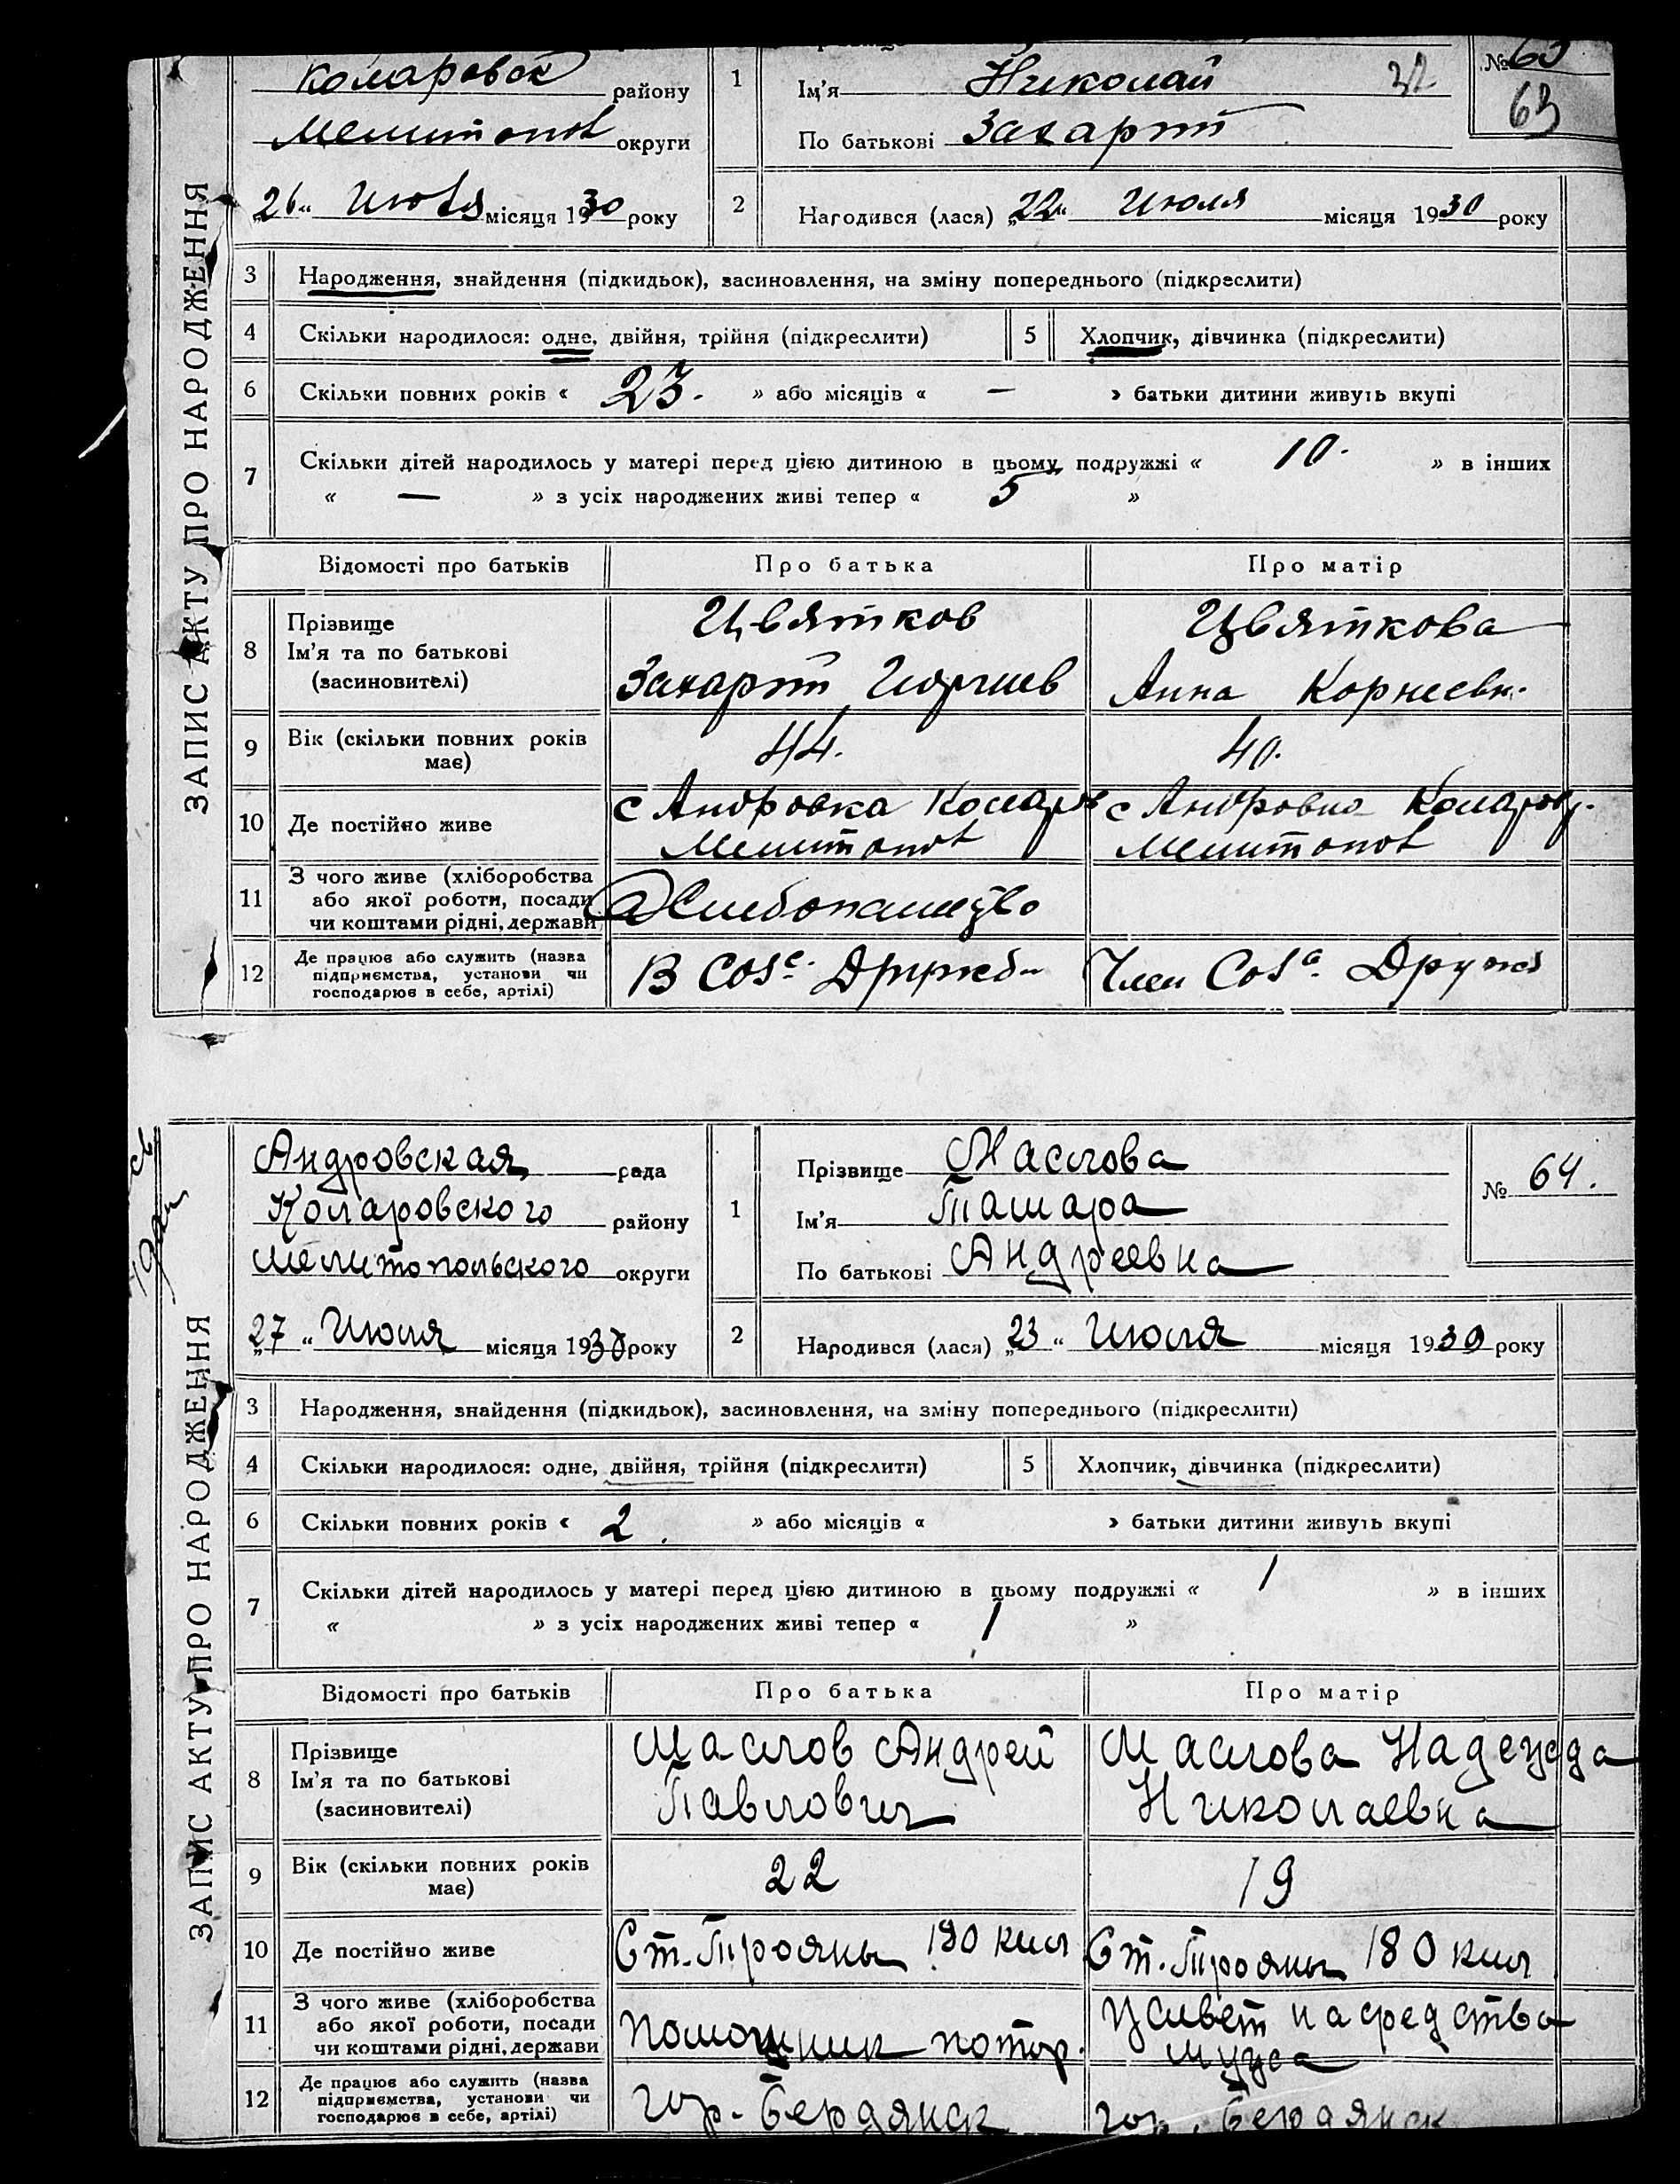 Коларовск району
Мелитопол округи
„26" Июля місяця 1930 року
1
Ім'я Николай
По батькові Захарий
32
№ 63
63
2
Народився (лася) „22" Июля місяця 1930 року
ЗАПИС АКТУ ПРО НАРОДЖЕННЯ
3 Народження, знайдення (підкидьок), засиновлення, на зміну попереднього (підкреслити)
4 Скільки народилося: одне, двійня, трійня (підкреслити)
5 Хлопчик, дівчинка (підкреслити)
6 Скільки повних років « 23. » або місяців « — » батьки дитини живуть вкупі
7 Скільки дітей народилось у матері перед цією дитиною в цьому подружжі « 10. » в інших
« — » з усіх народжених живі тепер « 5 »
Відомості про батьків Про батька Про матір
8 Прізвище
Ім'я та по батькові
(засиновителі)
Цвятков
Захарий Георгиев
Цвяткова
Анна Корнеевн.
9 Вік (скільки повних років
має)
44.
40.
10 Де постійно живе
с Андровка Коларов
Мелитопол
с Андровка Коларов
Мелитопол
11 З чого живе (хліборобства
або якої роботи, посади
чи коштами рідні, держави
Хлебопашество
12 Де працює або служить (назва
підприємства, установи чи
господарює в себе, артілі)
В Соз Дружб
Член Соз Дружб
Андровская рада
Коларовского району
Мелитопольского округи
„27" Июля місяця 1930 року
1
Прізвище Маслова
Ім'я Тамара
По батькові Андреевна
№ 64.
2
Народився (лася) „23" Июля місяця 1930 року
ЗАПИС АКТУ ПРО НАРОДЖЕННЯ
3 Народження, знайдення (підкидьок), засиновлення, на зміну попереднього (підкреслити)
4 Скільки народилося: одне, двійня, трійня (підкреслити)
5 Хлопчик, дівчинка (підкреслити)
6 Скільки повних років « 2. » або місяців « » батьки дитини живуть вкупі
7 Скільки дітей народилось у матері перед цією дитиною в цьому подружжі « 1 » в інших
« » з усіх народжених живі тепер « 1 »
Відомості про батьків Про батька Про матір
8 Прізвище
Ім'я та по батькові
(засиновителі)
Маслов Андрей
Павлович
Маслова Надежда
Николаевна
9 Вік (скільки повних років
має)
22
19
10 Де постійно живе
Ст. Трояны 180 кил
Ст. Трояны 180 кил
11 З чого живе (хліборобства
або якої роботи, посади
чи коштами рідні, держави
помошник
живет на средства
мужа
12 Де працює або служить (назва
підприємства, установи чи
господарює в себе, артілі)
гор. Бердянск
гор. Бердянск